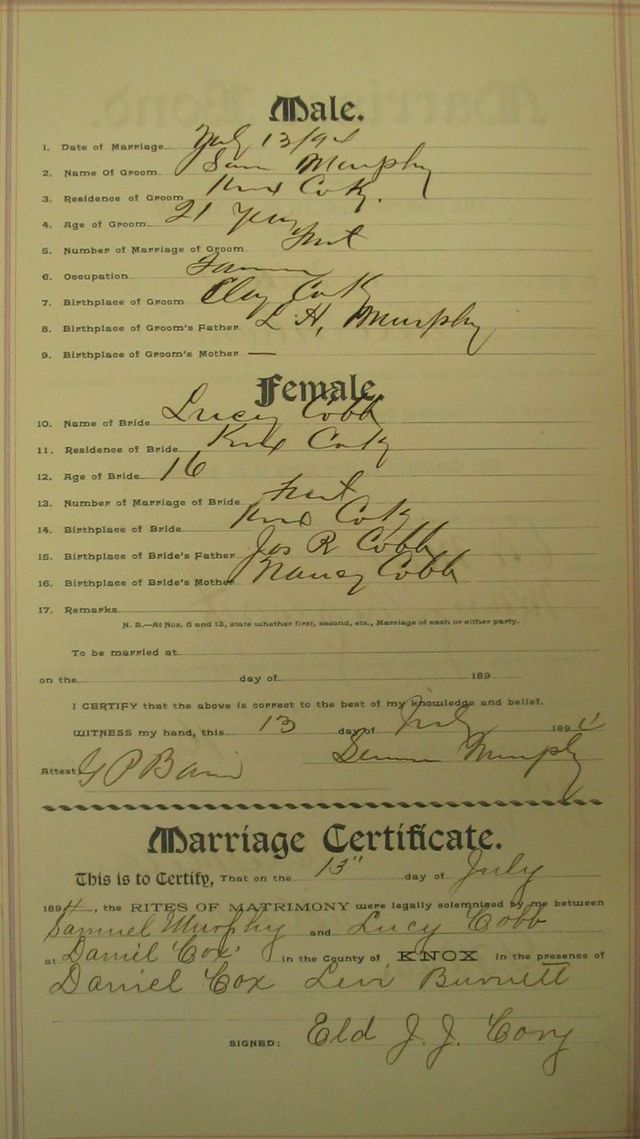 Male.
1. Date of Marriage July 13/94
2. Name Of Groom Sam Murphy
3. Residence of Groom Knox Co Ky.
4. Age of Groom 21 years
5. Number of Marriage of Groom First
6. Occupation Farmer
7. Birthplace of Groom Clay Co Ky
8. Birthplace of Groom's Father L H, Murphy
9. Birthplace of Groom's Mother —
Female.
10. Name of Bride Lucy Cobb
11. Residence of Bride Knox Co Ky
12. Age of Bride 16
13. Number of Marriage of Bride First
14. Birthplace of Bride Knox Co Ky
15. Birthplace of Bride's Father Jas R Cobb
16. Birthplace of Bride's Mother Nancy Cobb
17. Remarks
N. B.—At Nos. 5 and 13, state whether first, second, etc., Marriage of each or either party.
To be married at
on the day of 189
I CERTIFY that the above is correct to the best of my knowledge and belief.
WITNESS my hand, this 13 day of July 1894
Murphy
Attest G P Bain
Marriage Certificate.
This is to Certify, That on the 13" day of July
1894, the RITES OF MATRIMONY were legally solemnized by me between
Samuel Murphy and Lucy Cobb
at Daniel Cox' in the County of KNOX in the presence of
Daniel Cox Levi Burnett
SIGNED: Eld J. J. Cory